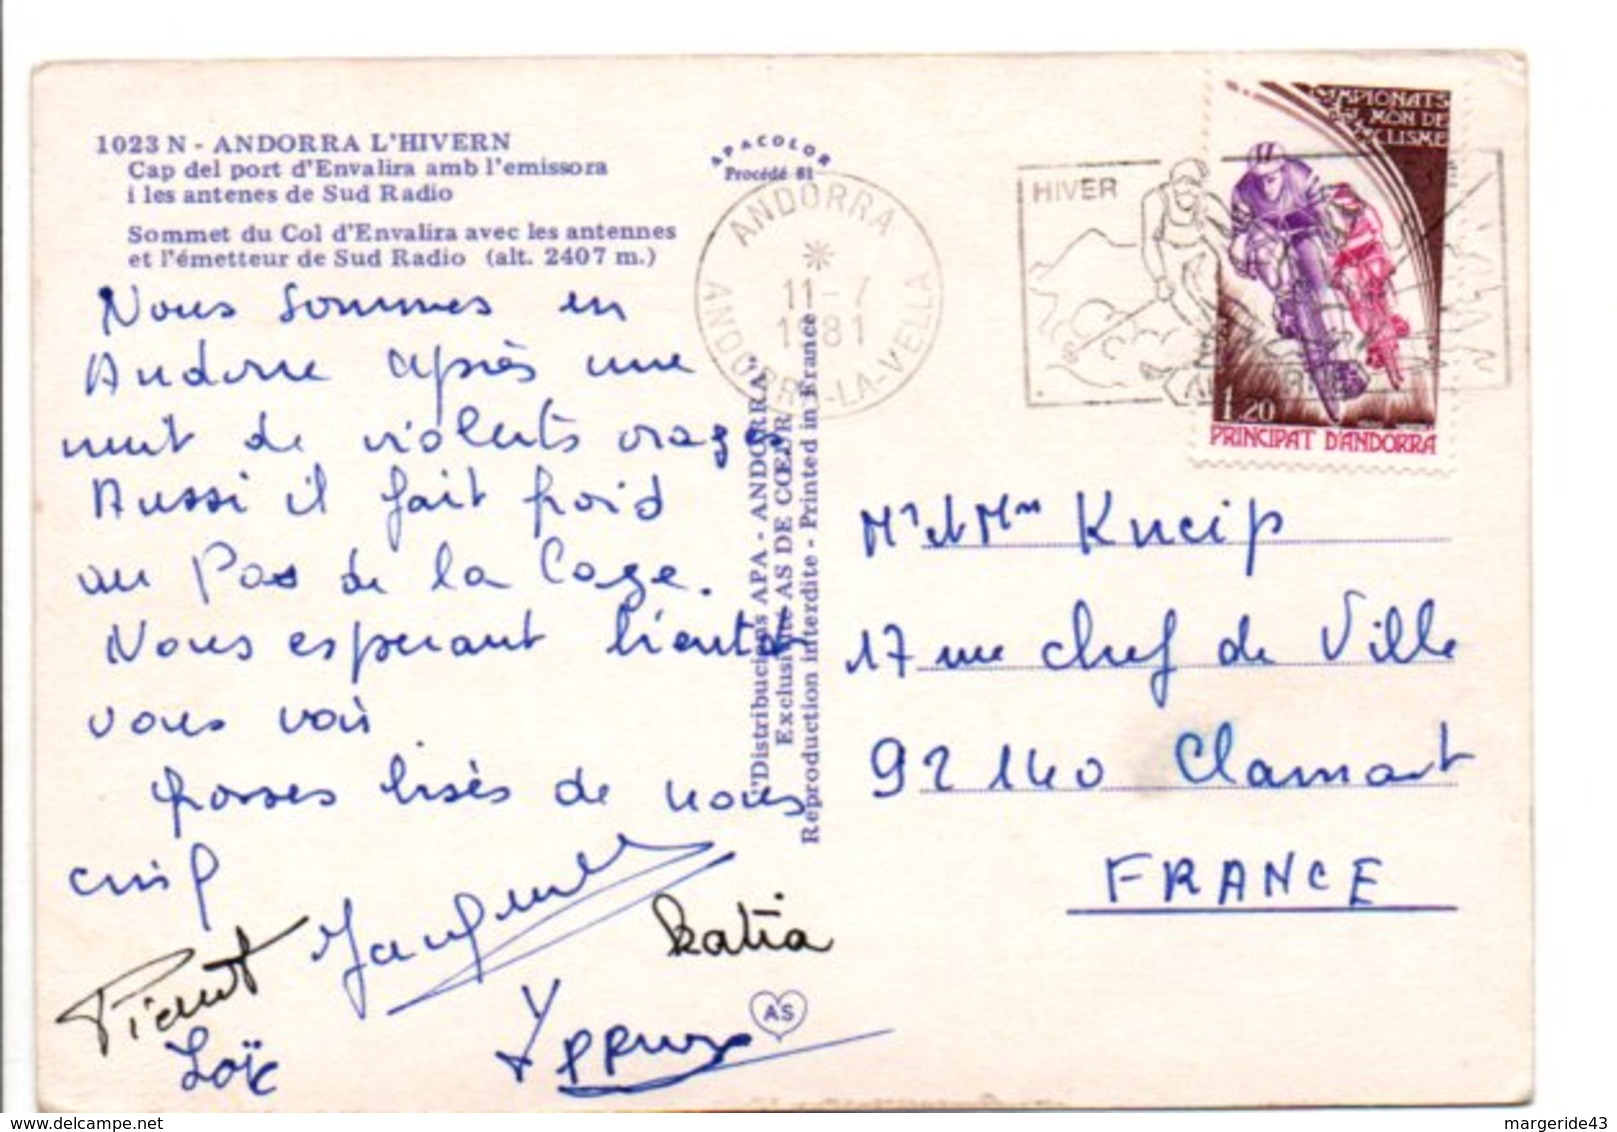 1023 N - ANDORRA L'HIVERN
Cap del port d'Envalira amb l'emissora
i les antenes de Sud Radio
Sommet du Col d'Envalira avec les antennes
et l'émetteur de Sud Radio (alt. 2407 m.)
APACOLOR
Procédé 81
Nous sommes en
Andorre après une
nuit de violents orages
Aussi il fait froid
au Pas de la Case.
Nous esperant bientôt
vous voir
grosses bises de nous
cinq
Katia
Loïc
AS
"Distribucions APA - ANDORRA"
Exclusivité AS DE CŒUR
Reproduction interdite - Printed in France
ANDORRA
11-7
1981
ANDORRA-LA-VELLA
HIVER
CAMPIONATS
DEL MON DE
CICLISME
1,20
PRINCIPAT D'ANDORRA
Mr et Mme Kneip
17 rue chef de Ville
92140 Clamart
FRANCE
margeride43